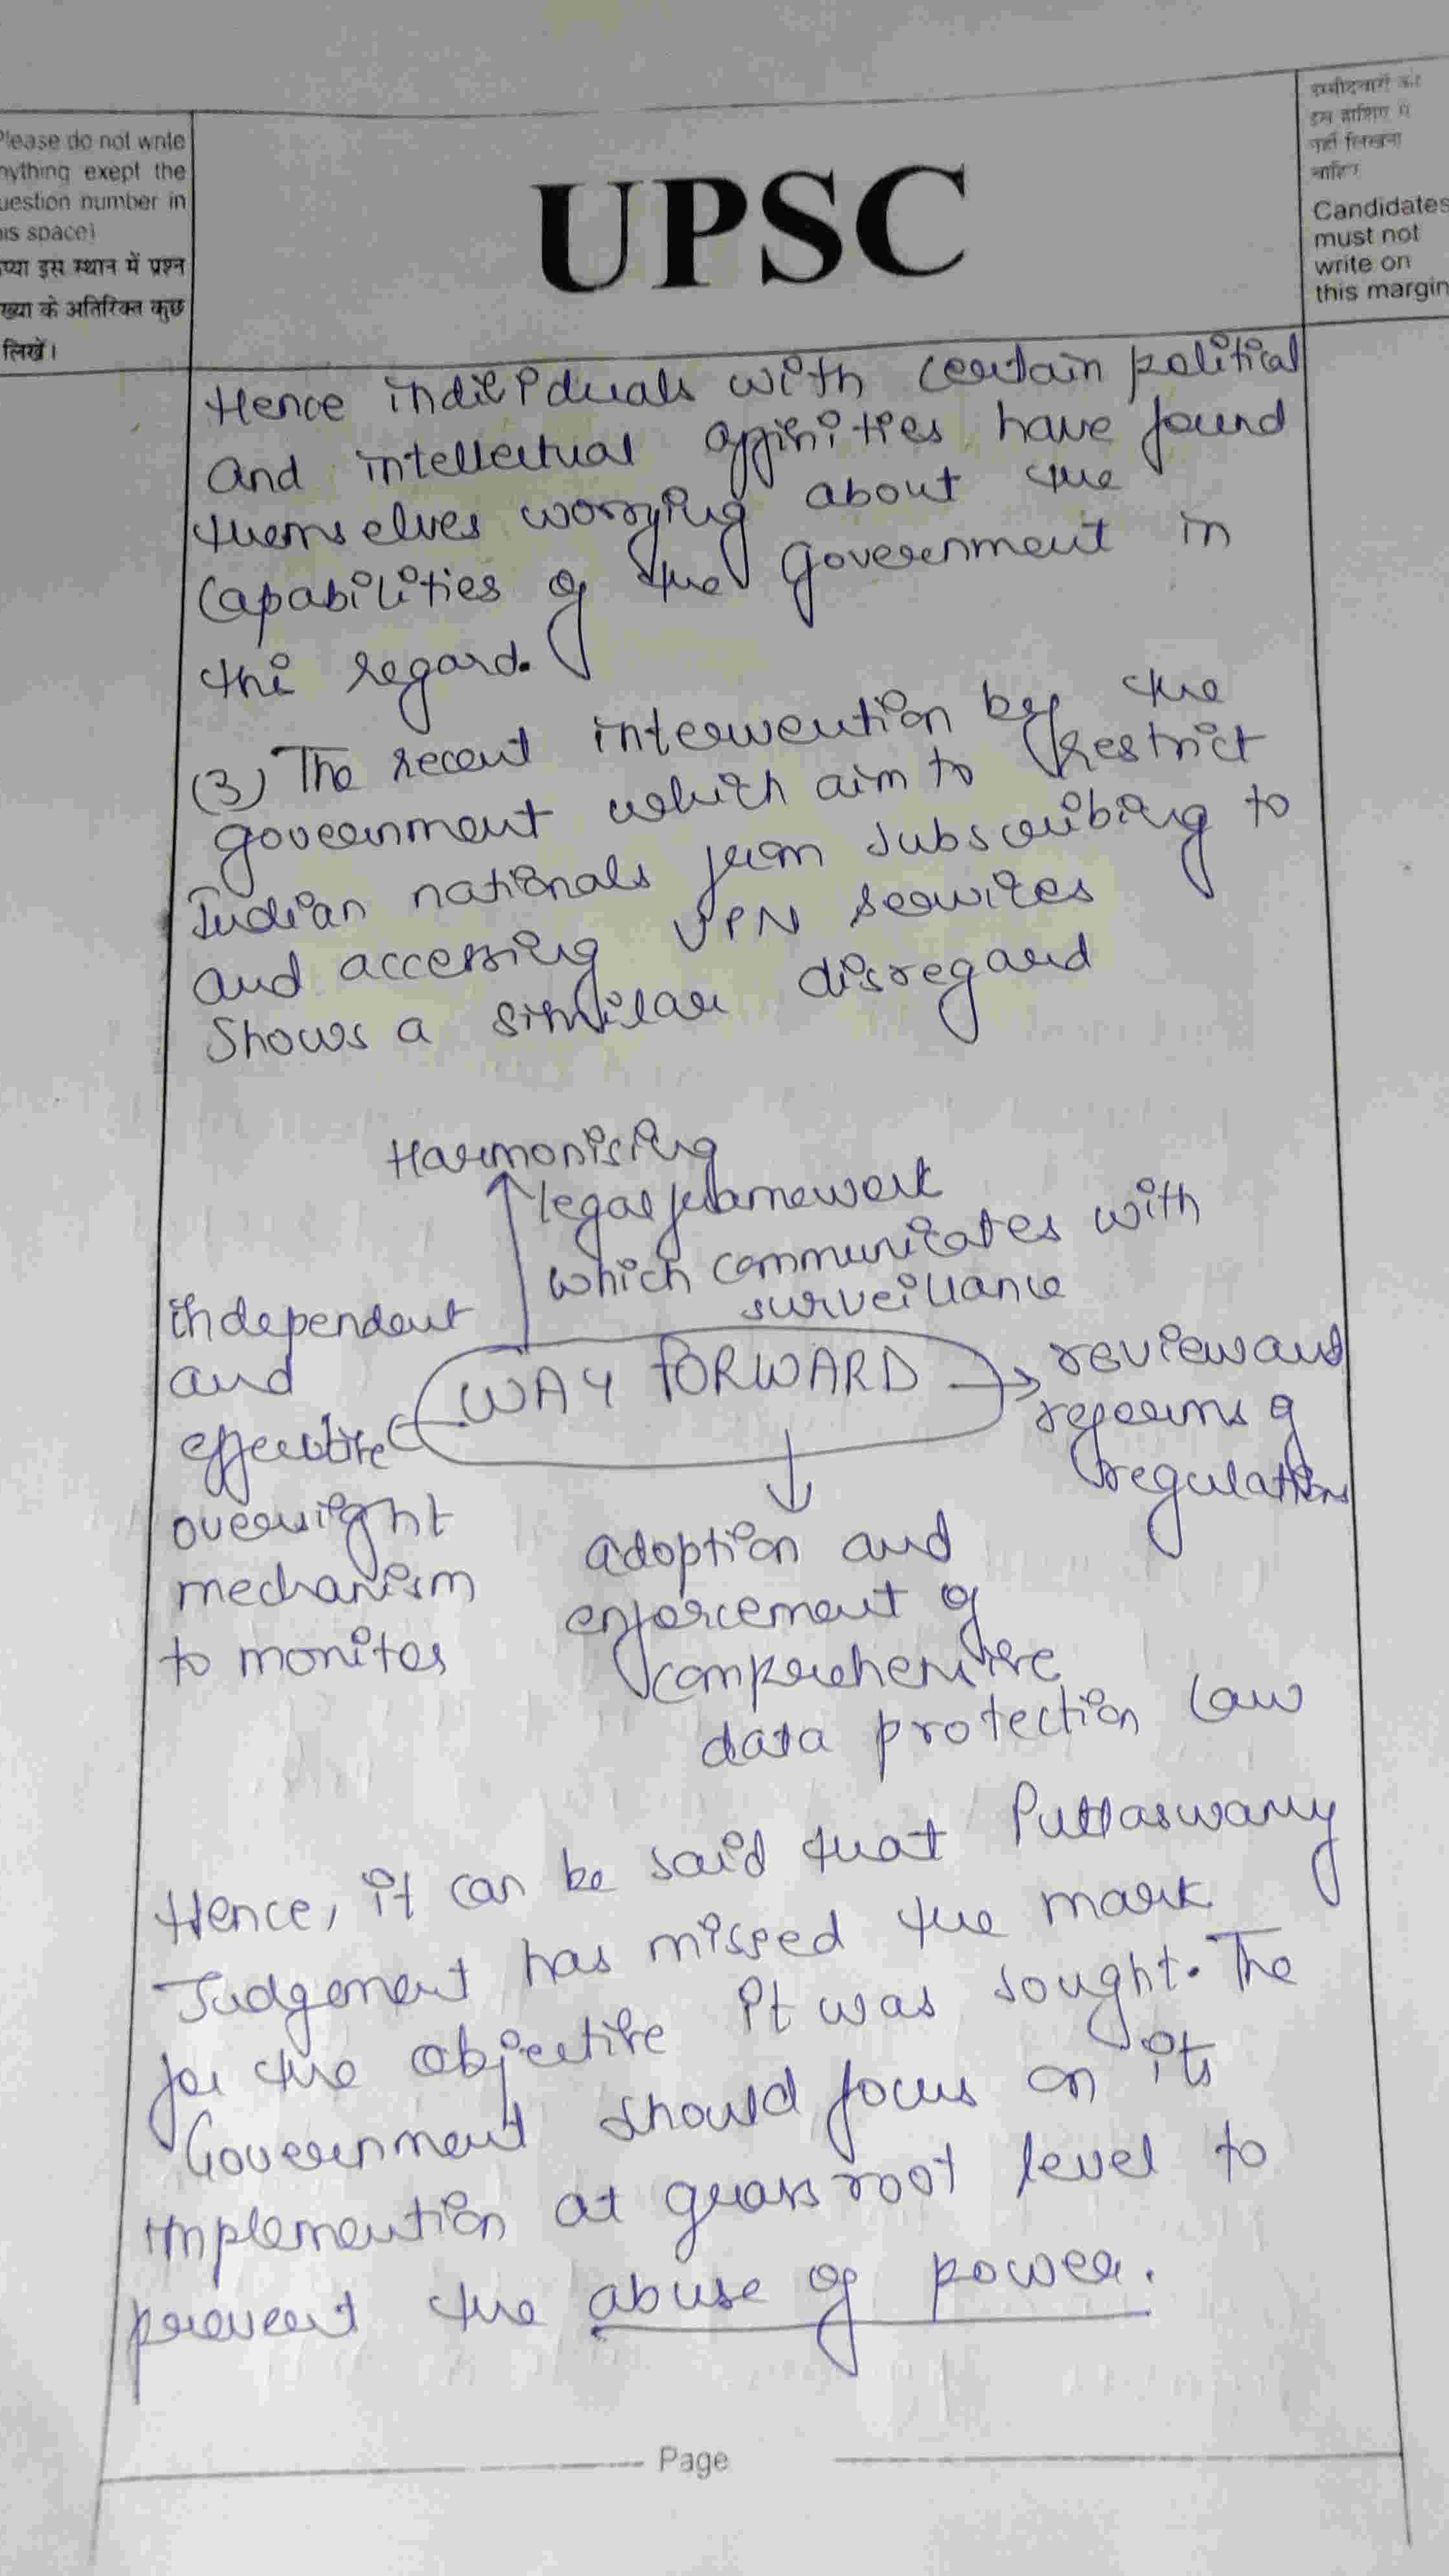 Please do not write
nything exept the
uestion number in
is space)
प्या इस स्थान में प्रश्न
ख्या के अतिरिक्त कुछ
लिखें।
UPSC
उम्मीदवारों को
इस हाशिए में
नहीं लिखना
चाहिए
Candidates
must not
write on
this margin
Hence individuals with certain political
and intellectual affinities have found
themselves worrying about the
capabilities of the Government in
thi regard.
(3) The recent intervention by the
government which aim to restrict
Indian nationals from subscribing to
and accessing VPN services
Shows a similar disregard
Harmonising
legal framework
which communicates with
surveillance
independent
and
effective
oversight
mechanism
to monitor
WAY FORWARD
review and
reforms of
regulations
adoption and
enforcement of
comprehensive
data protection law
Hence, it can be said that Puttaswamy
Judgement has missed the mark
for the objective it was sought. The
Government should focus on its
implemention at grass root level to
prevent the abuse of power.
Page